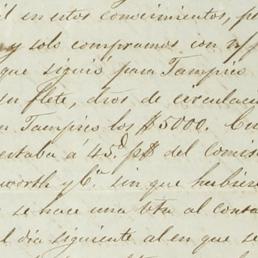 il en estos conocimientos, pe
y solo compramos con n/p
que siguió para Tampico
su flete, dros de circulac
n Tampico los $5000. Cu
estaba á 43d p$ del comis
worth y Ca. sin que hubiere
se hace una vta al conta
l dia siguiente al en que se